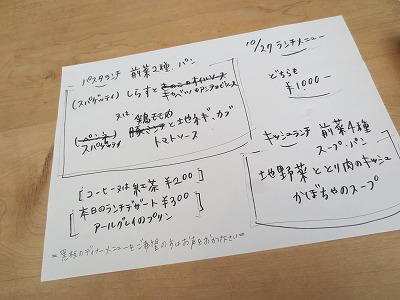 10/27 ランチメニュー
どちらも
¥1,000-
パスタランチ 前菜2種 パン
(スパゲッティ) しらすと きのこのオイルソース
キャベツのアンチョビソース
又は 鶏モモ肉
(ペンネ) 豚ミンチと地ネギ、カブ
スパゲッティ トマトソース
キッシュランチ 前菜4種
スープ・パン
地野菜ととり肉のキッシュ
かぼちゃのスープ
コーヒー又は紅茶 ¥200
本日のランチデザート ¥300
アールグレイのプリン
のディナーメニューをご希望の方はお声をおかけください